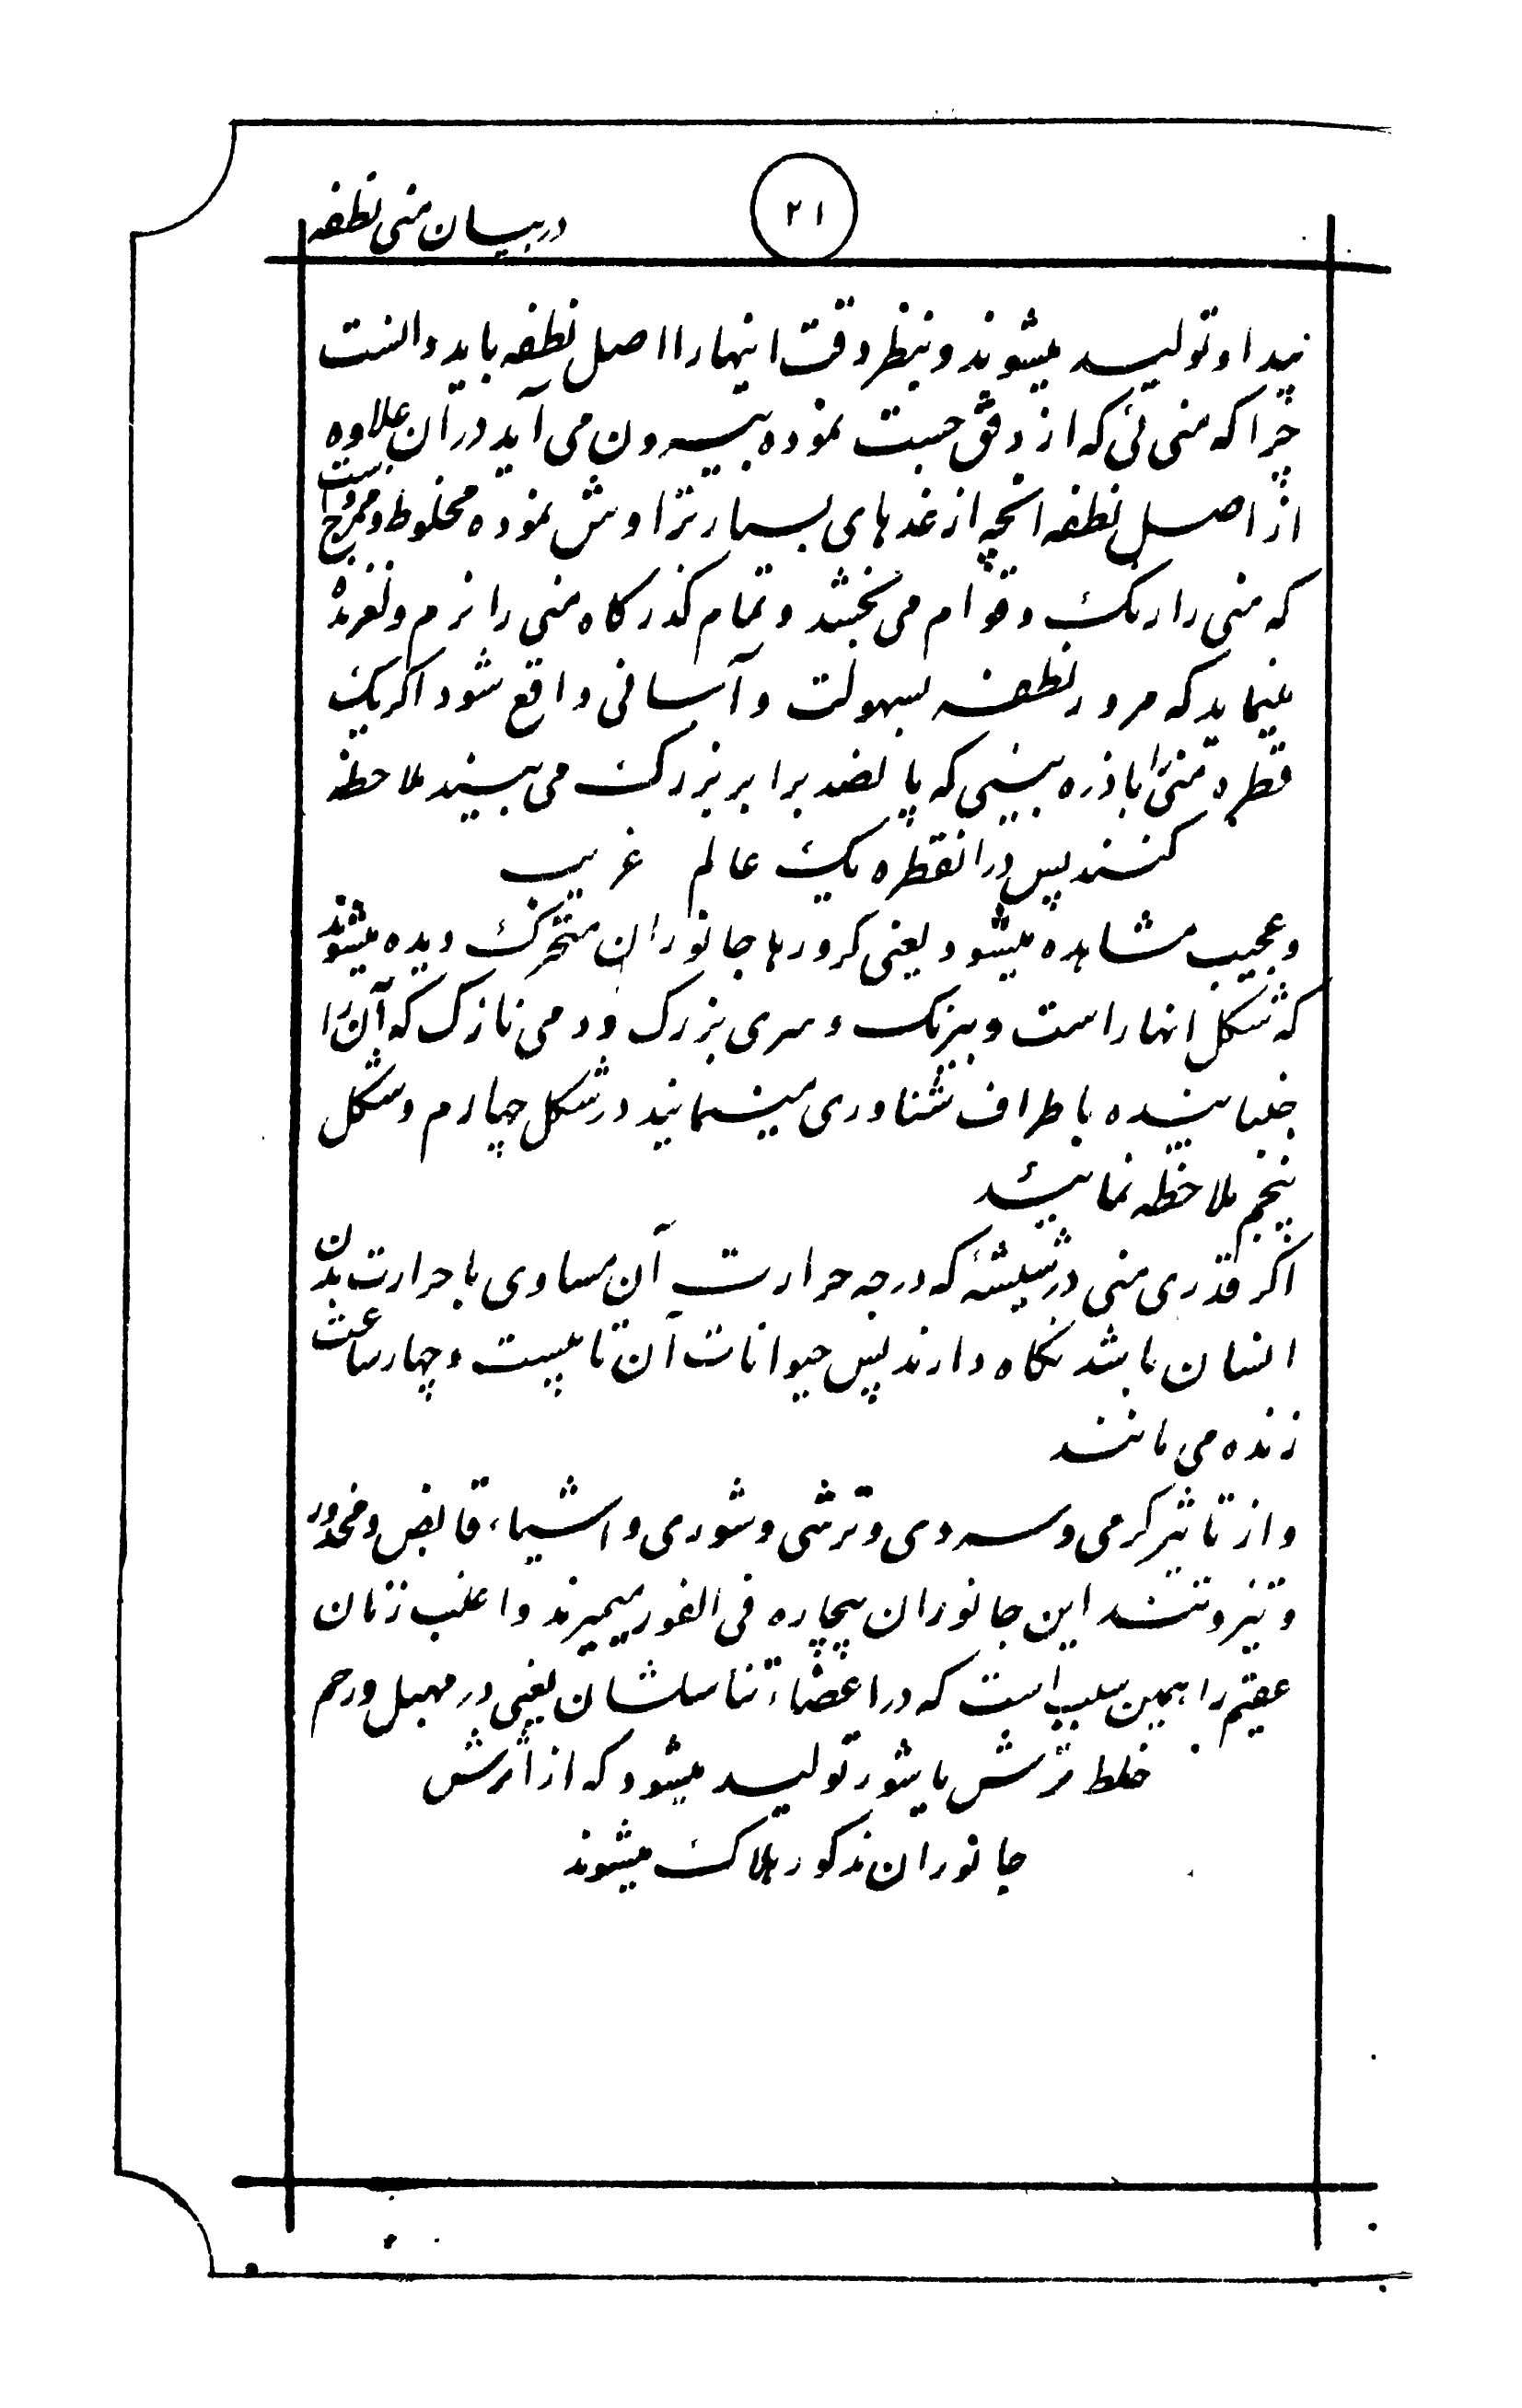 در بیان منی نطفه
۲۱
پیدا و تولید میشوند و بنظر دقت اینها را اصل نطفه باید دانست
چرا که منی ئی که از دفق جست نموده بیرون می آید در آن علاوه
از اصل نطفه انچه از غدهای بسیار تراوش نموده مخلوط و ممزوج است
که منی را رنک و قوام می بخشد و تمام کذرکاه منی را نرم و لغزنده
مینماید که مرور نطفه بسهولت و آسانی واقع شود اکر یک
قطره منی را با ذره بینی که پانصد برابر بزرک می بیند ملاحظه
کنند پس در انقطره یک عالم غریب
و عجیب مشاهده میشود یعنی کرورها جانوران متحرک دیده میشوند
که شکل انها راست و بیرنک و سری بزرک و دمی نازک که آن را
جنبانیده باطراف شناوری مینمایند در شکل چهارم و شکل
پنجم ملاحظه نمائید
اکر قدری منی در شیشهٔ که درجه حرارت آن مساوی با حرارت بدن
انسان باشد نکاه دارند پس حیوانات آن تا بیست و چهار ساعت
زنده می مانند
و از تاثیر کرمی و سردی و ترشی و شوری و اشیاء قابض و مخدور
و تیز و تند این جانوران بیچاره فی الفور میمیرند و اغلب زنان
عقیم را همین سبب است که در اعضاء تناسلشان یعنی در مهبل و رحم
خلط ترش یا شور تولید میشود که از اثرش
جانوران مذکور هلاک میشوند